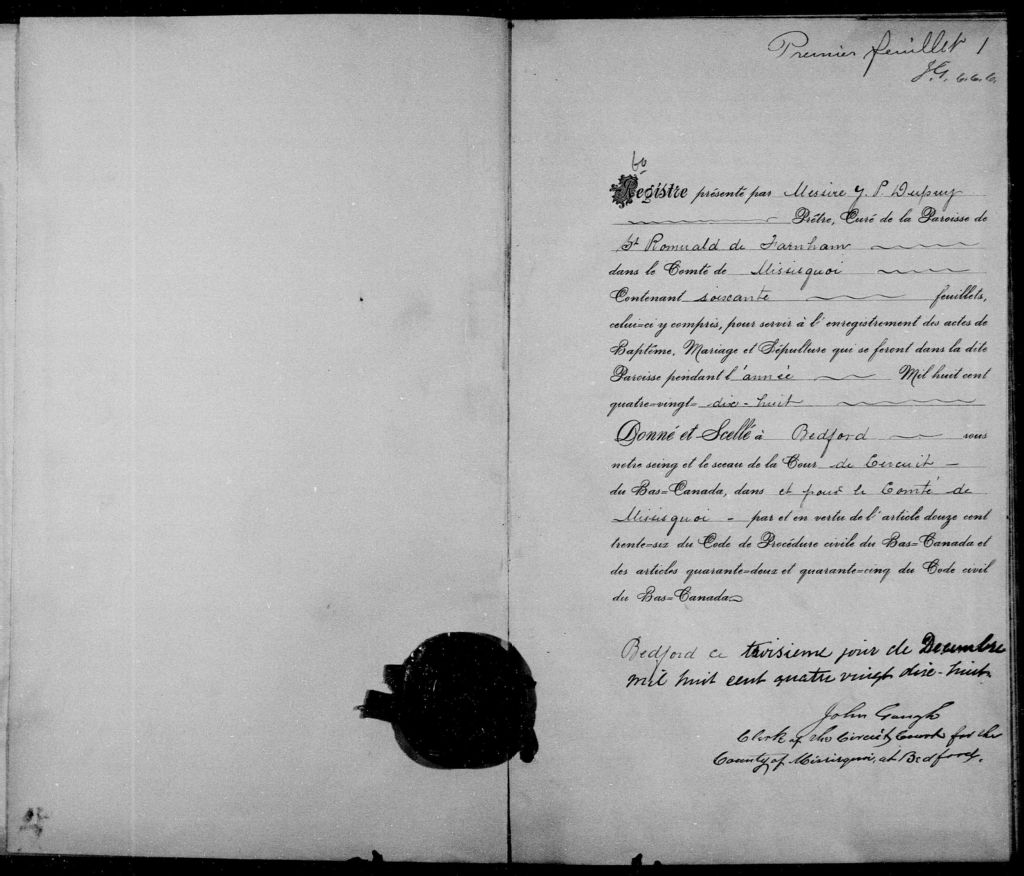 Premier feuillet 1
J.G. c.c.c.
60
Registre présenté par Messire J. P. Dupuy
Prêtre, Curé de la Paroisse de
St Romuald de Farnham
dans le Comté de Missisquoi
Contenant soixante feuillets,
celui=ci y compris, pour servir à l'enregistrement des actes de
Baptême, Mariage et Sépulture qui se feront dans la dite
Paroisse pendant l'année Mil huit cent
quatre=vingt= dix-huit
Donné et Scellé à Bedford sous
notre seing et le sceau de la Cour de Circuit -
du Bas=Canada, dans et pour le Comté de
Missisquoi - par et en vertu de l'article douze cent
trente=six du Code de Procédure civile du Bas=Canada et
des articles quarante=deux et quarante=cinq du Code civil
du Bas=Canada
Bedford ce troisieme jour de Decembre
mil huit cent quatre vingt dix-huit.
John Gough
Clerk of the Circuit Court for the
County of Missisquoi, at Bedford.